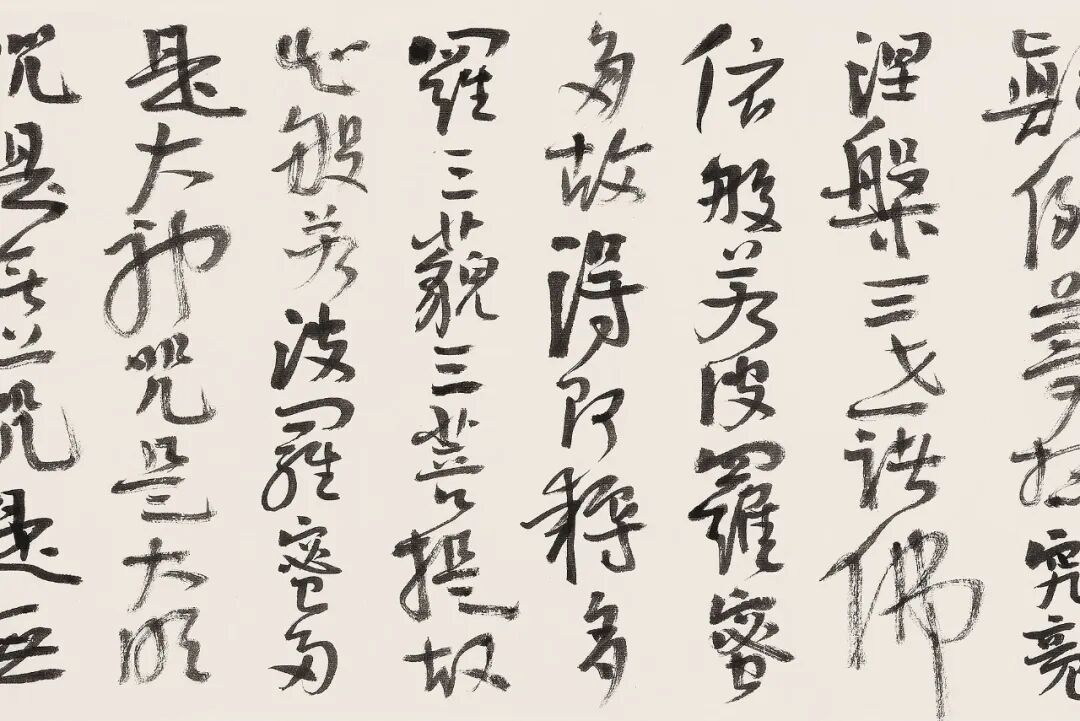 顛倒夢想究竟
涅槃三世諸佛
依般若波羅蜜
多故得阿耨多
羅三藐三菩提故
知般若波羅蜜多
是大神咒是大明
咒是無上咒是無